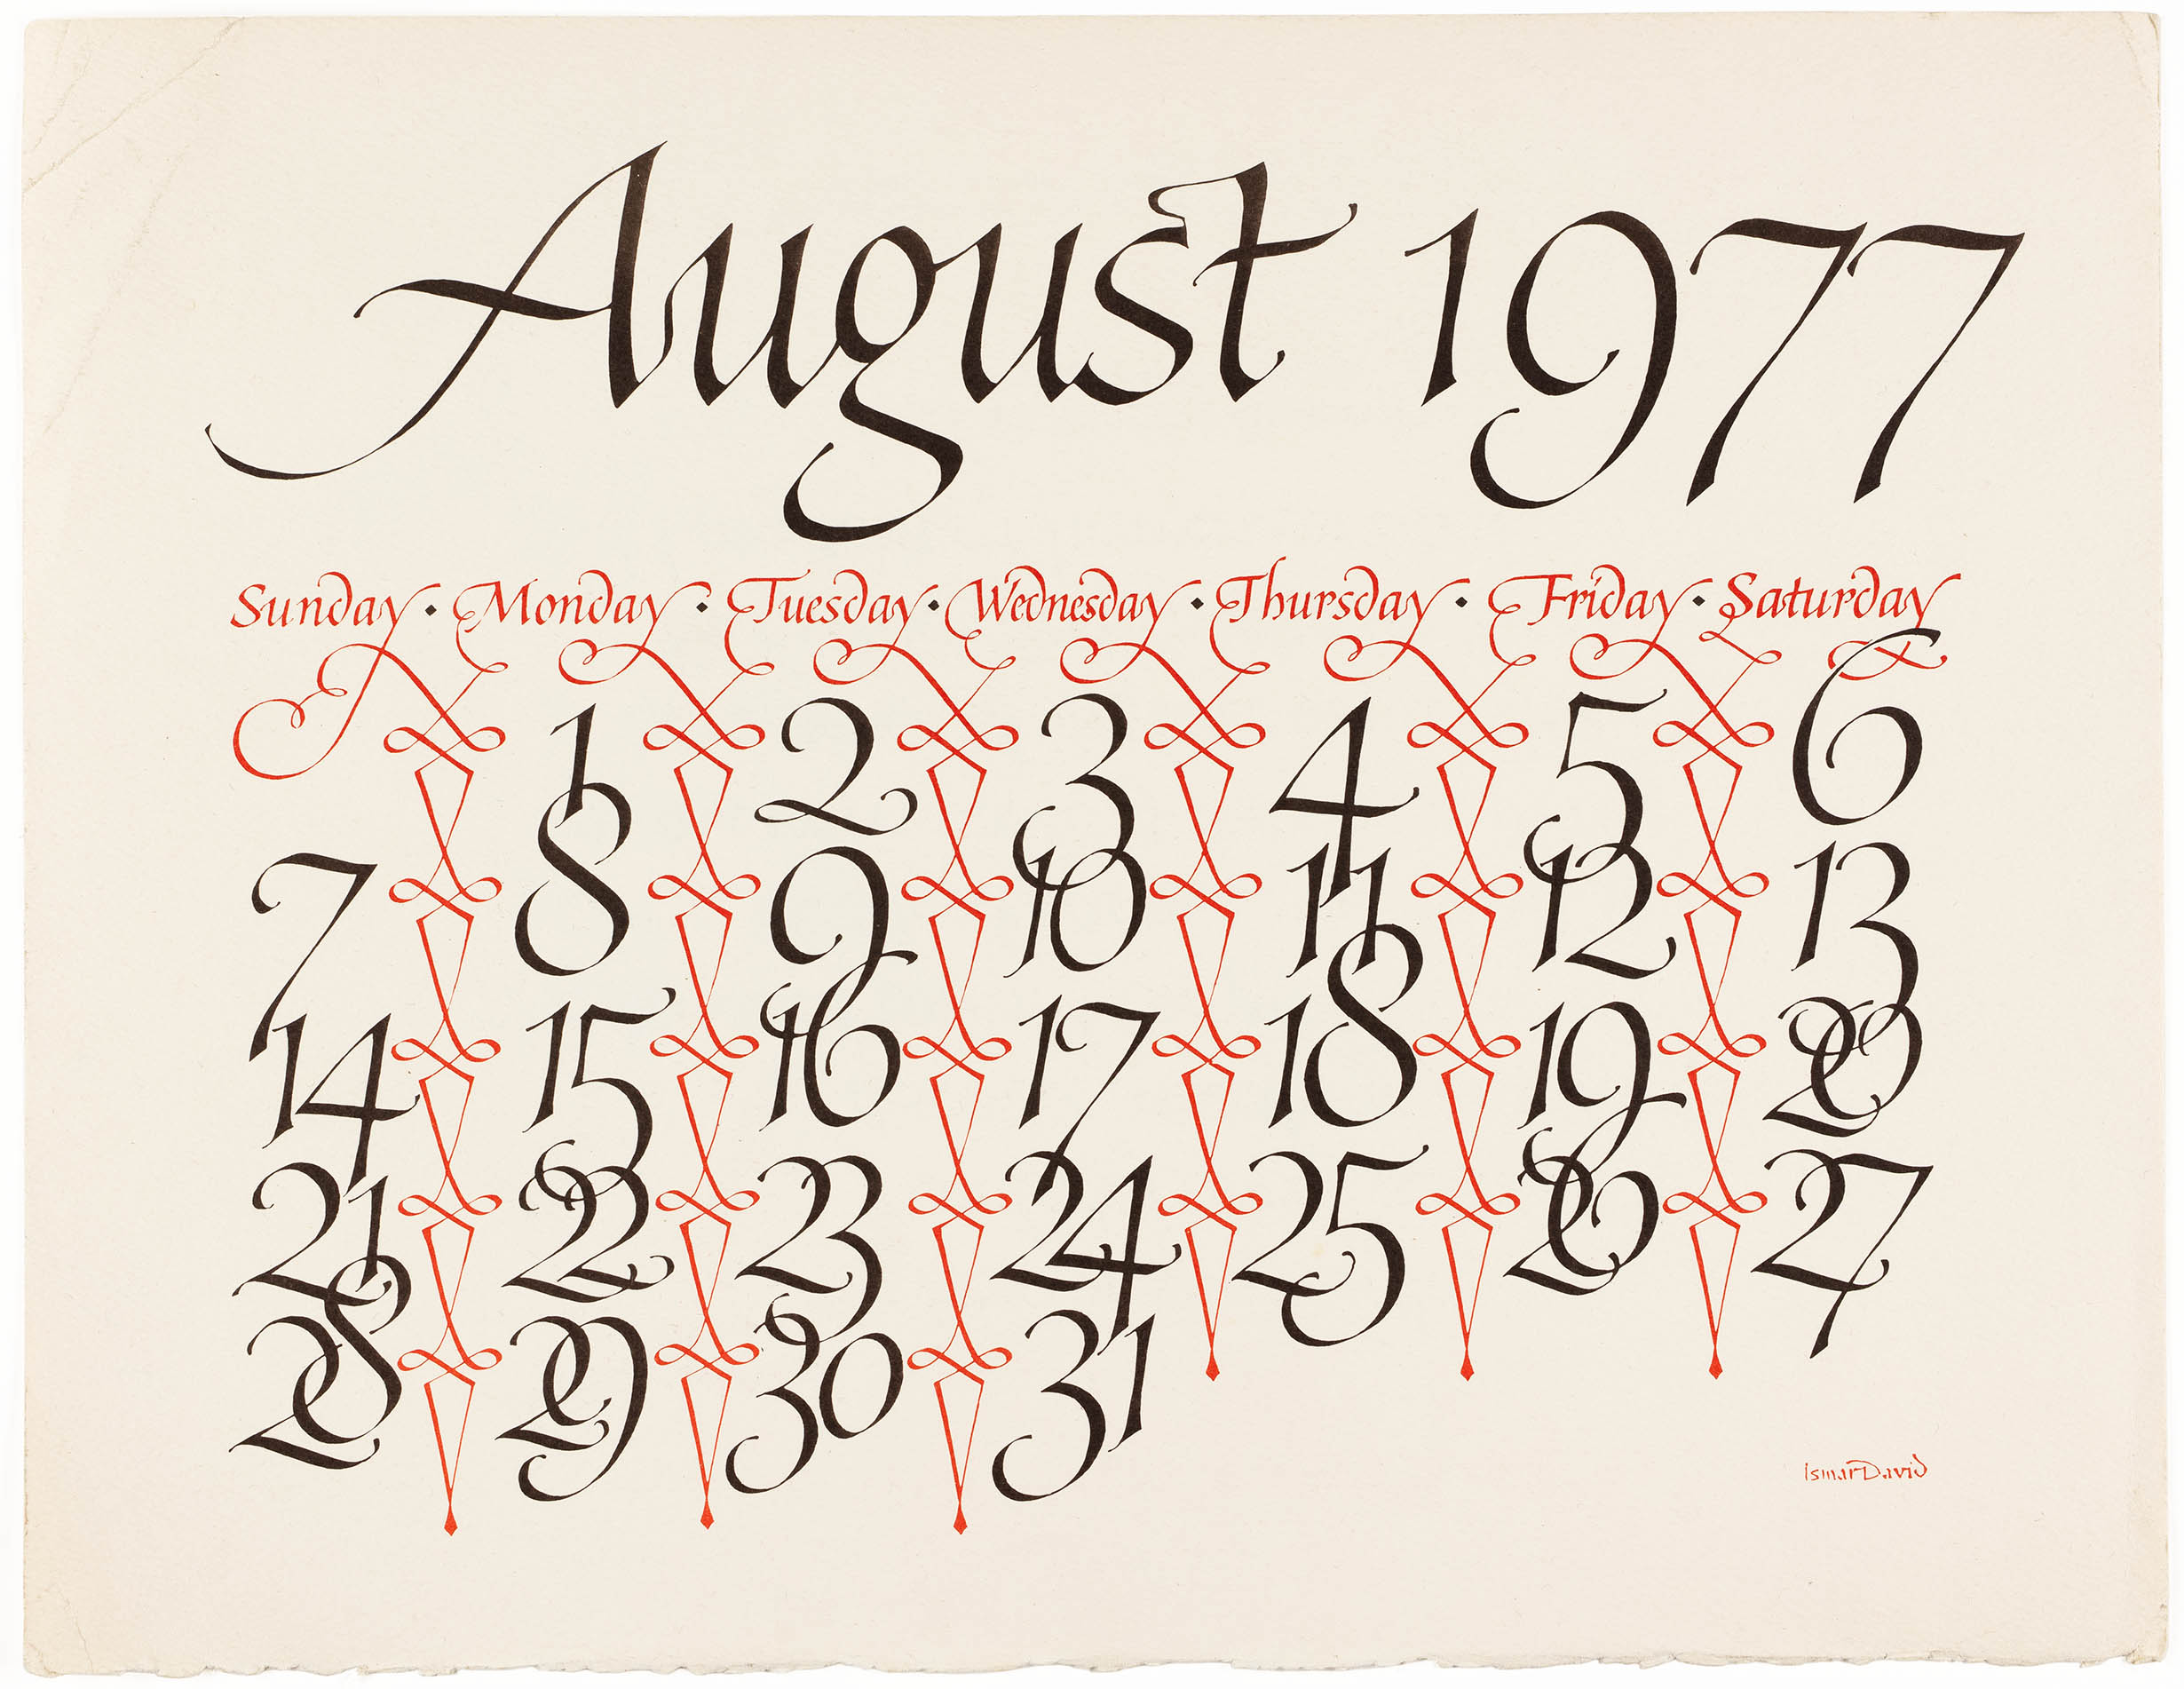 August 1977
Sunday · Monday · Tuesday · Wednesday · Thursday · Friday · Saturday
1 2 3 4 5 6
7 8 9 10 11 12 13
14 15 16 17 18 19 20
21 22 23 24 25 26 27
28 29 30 31
Ismar David